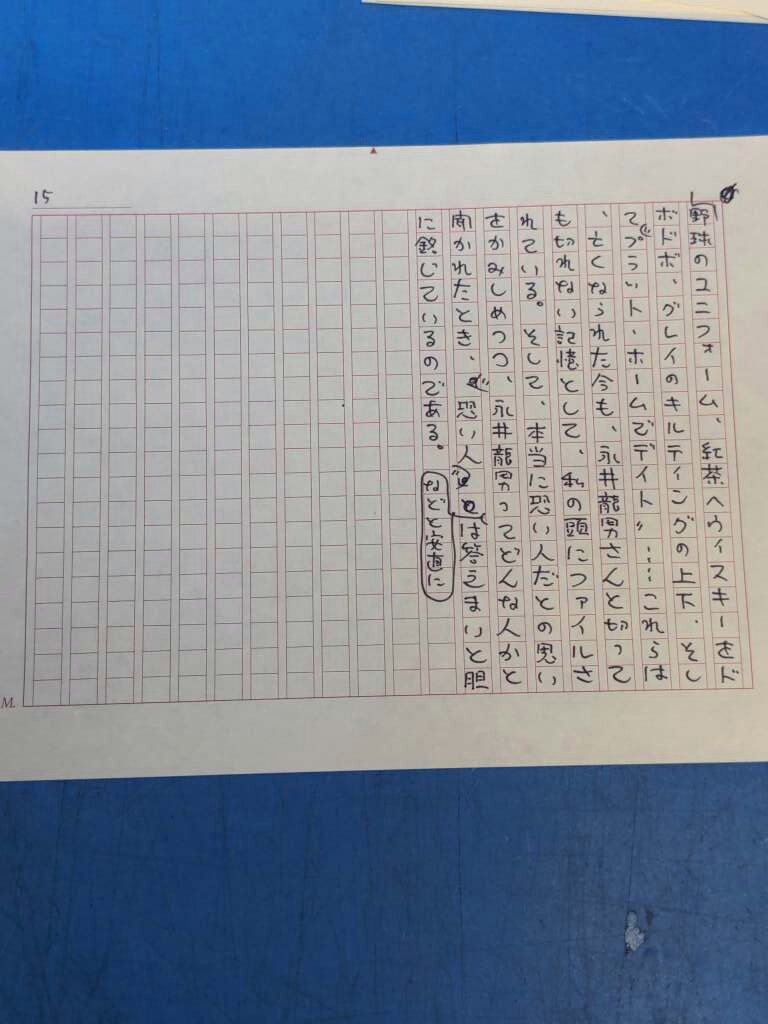 15
野球のユニフォーム、紅茶へウィスキーをド
ボドボ、グレイのキルティングの上下、そし
て〝プラット・ホームでデイト〟……これらは
、亡くなられた今も、永井龍男さんと切って
も切れない記憶として、私の頭にファイルさ
れている。そして、本当に恐い人だとの思い
をかみしめつつ、永井龍男ってどんな人かと
聞かれたとき、〝恐い人〟などと安直には答えまいと胆
に銘じているのである。
M.